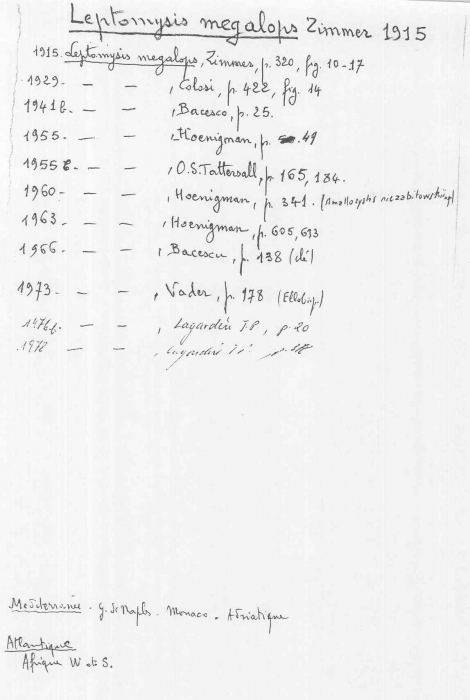 Leptomysis megalops Zimmer 1915
1915. Leptomysis megalops, Zimmer, p. 320, fig. 10-17
1929. — — , Colosi, p. 422, fig. 14
1941b. — — , Bacesco, p. 25.
1955. — — , Hoenigman, p. 49
1955 — — , O.S. Tattersall, p. 165, 184.
1960 — — , Hoenigman, p. 341.
1963 — — , Hoenigman, p. 605, 613
1966 — — , Bacescu, p. 138 (clé)
1973. — — , Vader, p. 178 (Ellobiop.)
1976b. — — , Lagardère JP, p. 20
1978 — — , Lagardère J.P.
Mediterranée - G. de Naples - Monaco - Adriatique
Atlantique
Afrique W et S.